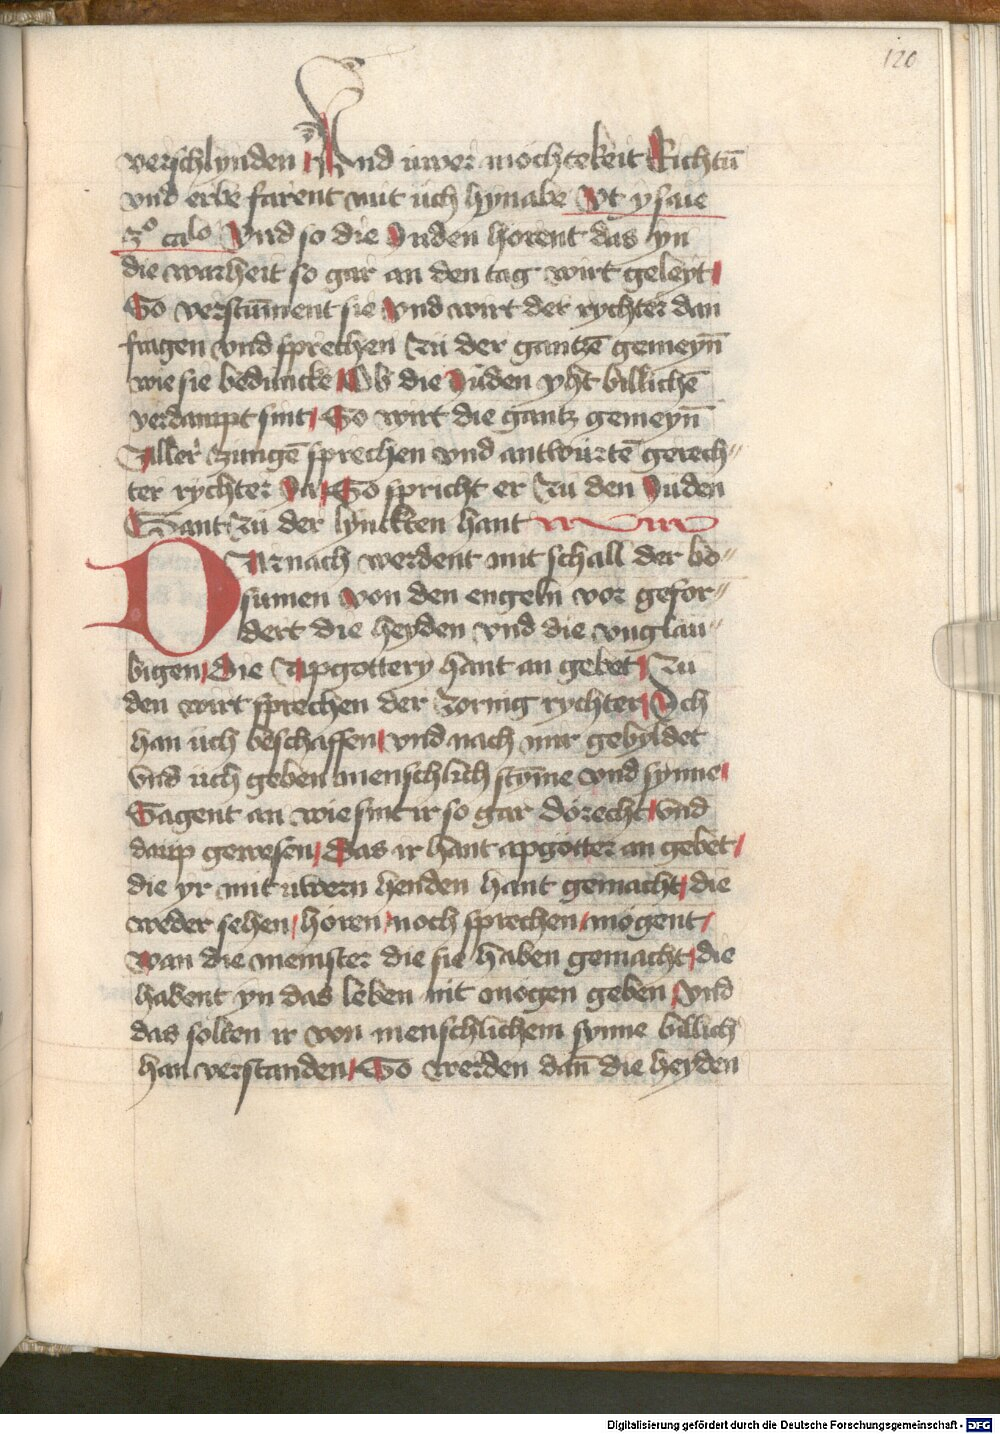 120
verschlynden / Vnd uwer mochtekeit Richtū
vnd erbe farent mit üch hynabe Vt ysaie
3º calº Vnd so die Juden horent das yn
die warheit so gar an den tag wirt geleyt /
So verstūment sie Vnd wirt der rychter dan
fragen vnd sprechen Zü der gantzē gemeyn̄
wie sie beduncke / Ob die Juden yht billichē
verdampt sint / So wirt die gantz gemeyn̄
Aller zungē sprechen vnd antwürtē gerech〃
ter rychter Ja / So spricht er Zü den Juden
Gant Zü der lynckten hant
DArnach werdent mit schall der bo〃
sumen von den engeln vor gefor〃
dert die heyden vnd die vnglau〃
bigen / Die Apgottery hant an gebet / Zu
den wirt sprechen der zornig rychter / Ich
han üch beschaffen / vnd nach mir gebyldet
vnd üch geben menschlich stȳme vnd synne /
Sagent an wie sint ir so gar dorecht / vnd
daup gewesen / Das ir hant apgötter an gebet /
die yr mit uwern henden hant gemacht / die
weder sehen / horen / noch sprechen / mögent /
wan die meinster die sie haben gemacht / die
habent yn das leben nit mogen geben / vnd
das solten ir von menschlichem synne billich
han verstanden / So werden dan̄ die heyden
Digitalisierung gefördert durch die Deutsche Forschungsgemeinschaft - DFG